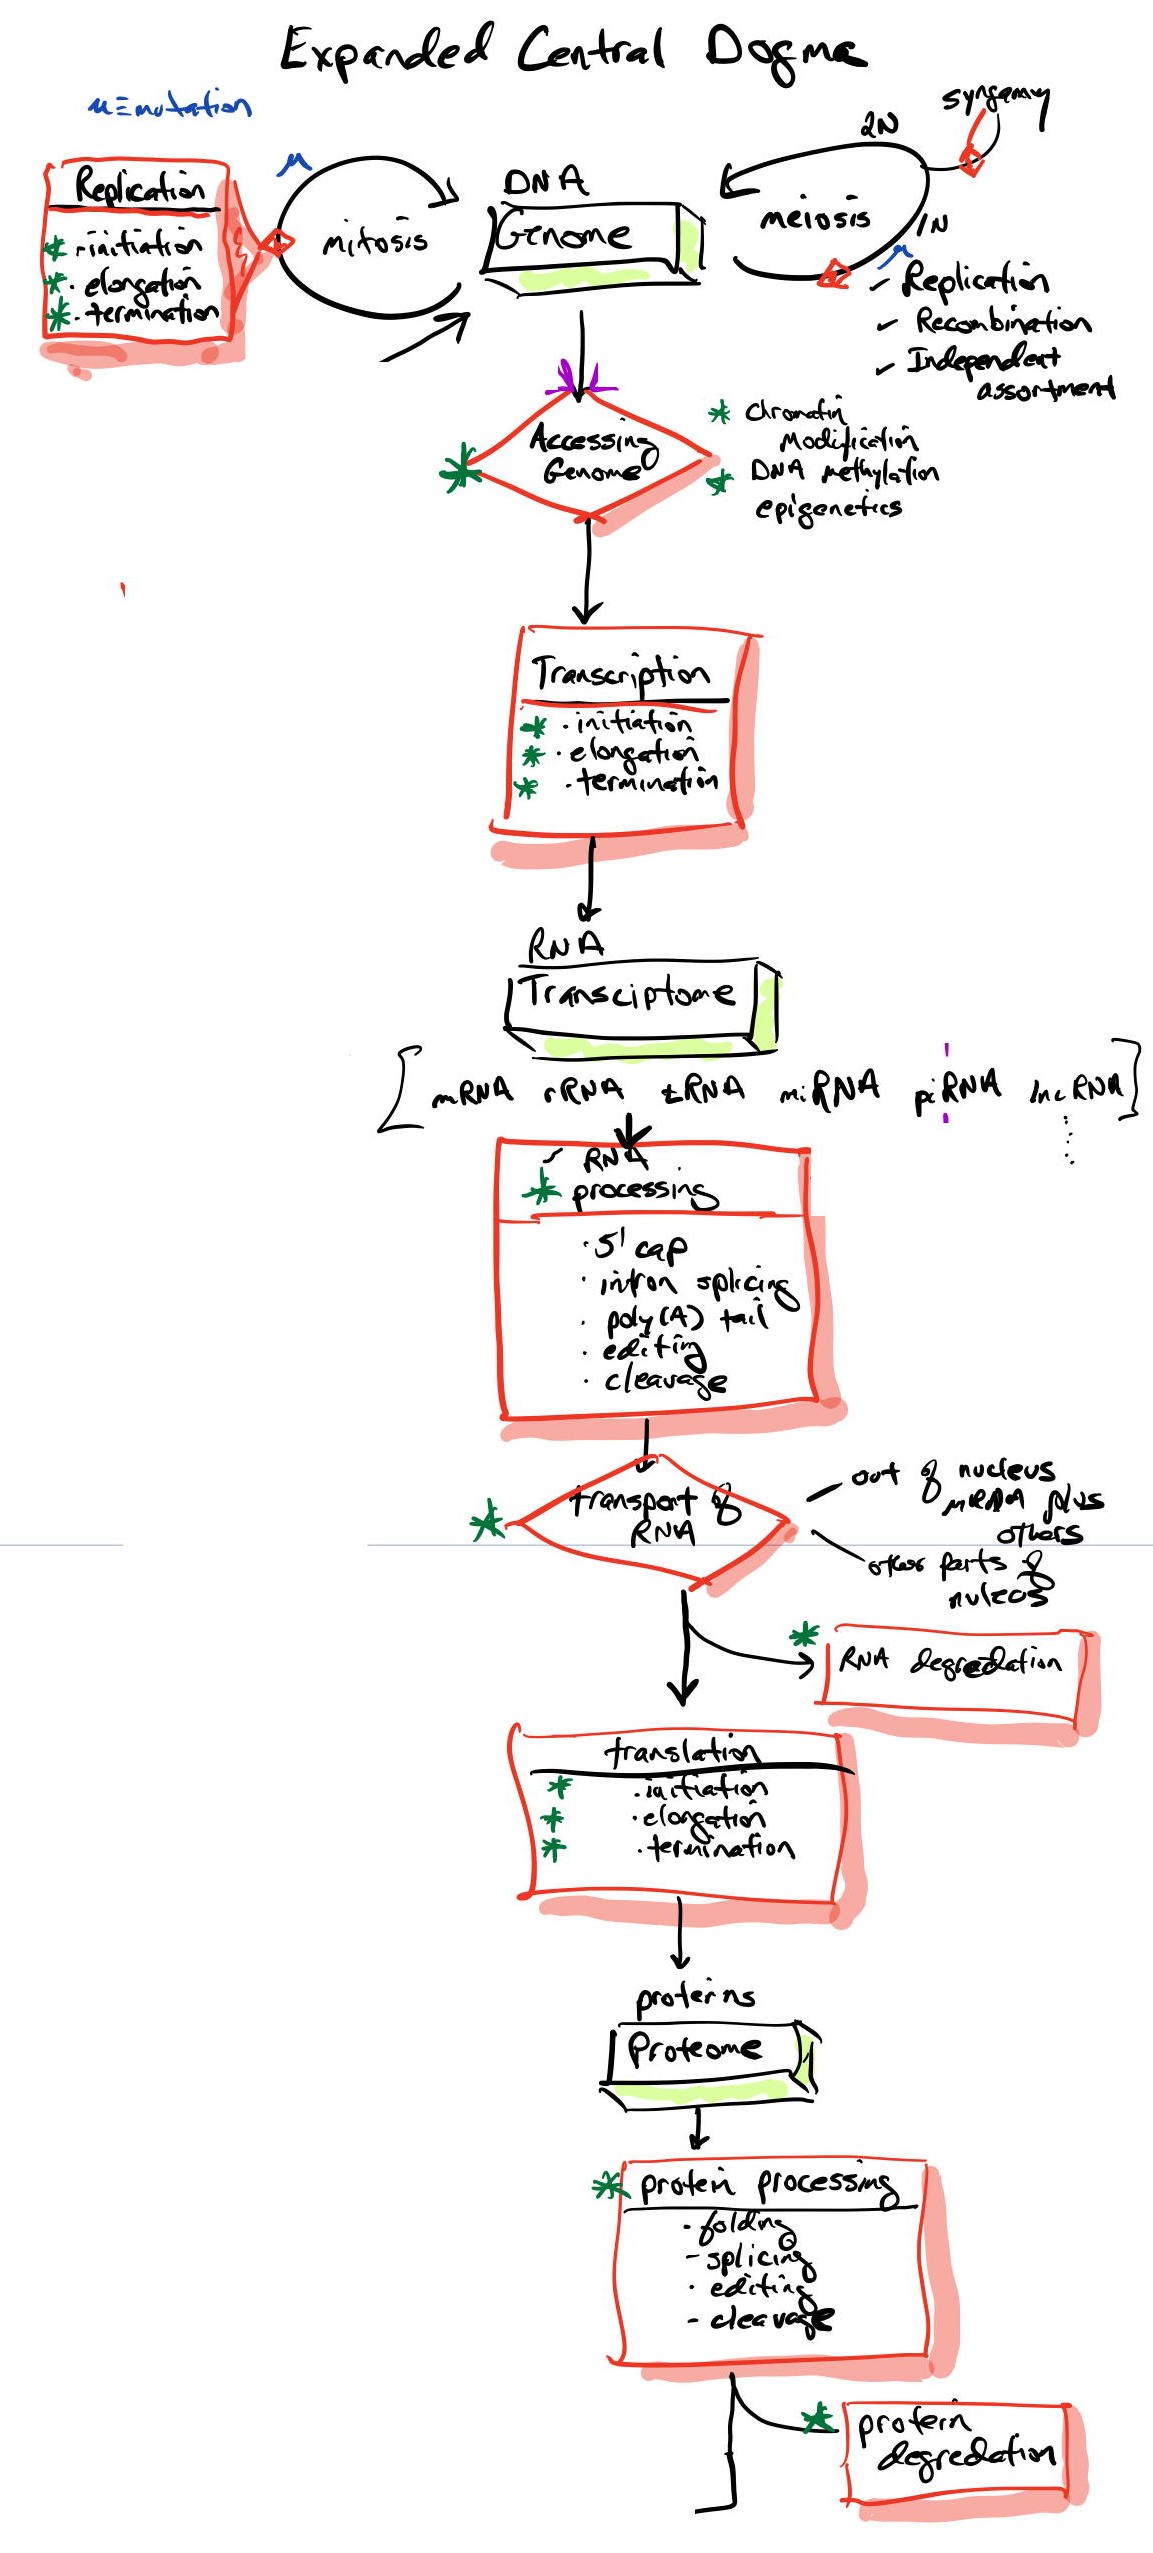 Expanded Central Dogma
μ ≡ mutation
syngamy
2N
Replication
· initiation
· elongation
· termination
μ
mitosis
DNA
Genome
meiosis
1N
μ
✓ Replication
✓ Recombination
✓ Independent
assortment
Accessing
Genome
* Chromatin
Modification
* DNA methylation
epigenetics
Transcription
* · initiation
* · elongation
* · termination
RNA
Transciptome
[mRNA rRNA tRNA miRNA piRNA lncRNA]
RNA
* processing
· 5' cap
· intron splicing
· poly(A) tail
· editing
· cleavage
* transport of
RNA
out of nucleus
mRNA plus
others
other parts of
* RNA degredation
translation
* · initiation
* · elongation
* · termination
proteins
Proteome
* protein processing
· folding
- splicing
· editing
- cleavage
* protein
degredation